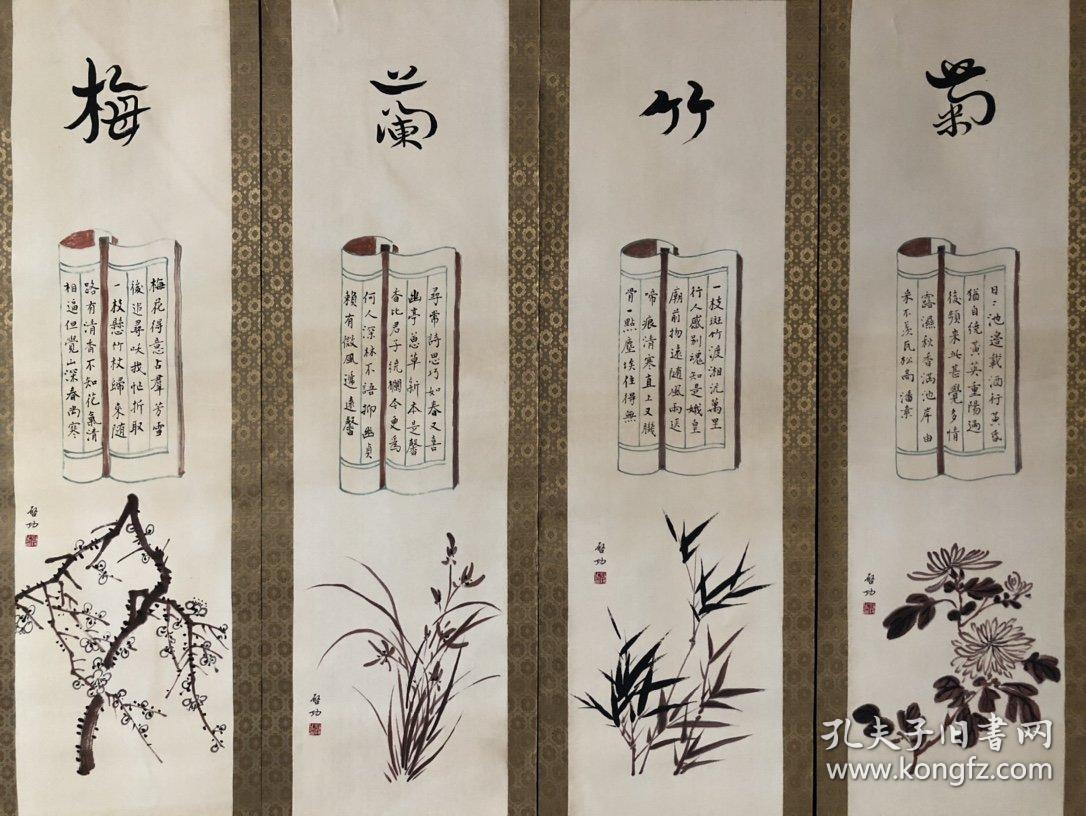 梅
梅花得意占羣芳雪
後追尋咲我忙折取
一枝懸竹杖歸來隨
路有清香不知花氣清
相逼但覺山深春尚寒
啓功
蘭
尋常詩思巧如春又喜
幽亭蕙草新本是馨
香比君子繞欄今更為
何人深林不語抑幽貞
賴有微風遞遠馨
啓功
竹
一枝斑竹渡湘沅萬里
行人感別魂知是娥皇
廟前物遠隨風雨送
啼痕清寒直上又
骨一點塵埃住得無
啓功
菊
日〻池邊載酒行黃昏
猶自繞黃英重陽過
後頻來此甚覺多情
露濕秋香滿池岸由
来不羨瓦松高潘
啓功
孔夫子旧書网
www.kongfz.com